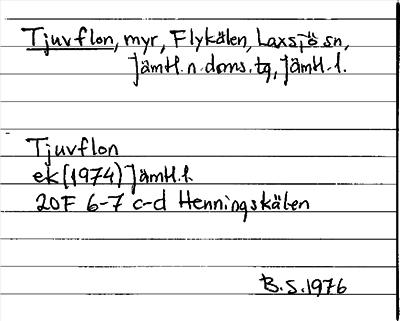 Tjuvflon, myr, Flykälen, Laxsjö sn,
Jämtl. n. doms. tg, Jämtl. l.
Tjuvflon
ek (1974) Jämtl. l.
20F 6-7 c-d Henningskälen
B.S. 1976